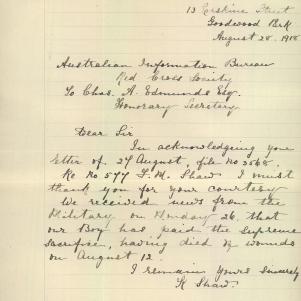 13 Erskine Street
Goodwood Prk
August 28. 1918
Australian Information Bureau
Red Cross Society
To Chas. A. Edmunds Esq.
Honorary Secretary
Dear Sir
In acknowledging your
letter of 27 August, file No 3568.
Re No 577 L. M. Shaw I must
thank you for your courtesy
We received news from the
Military on Monday 26. that
our Boy has paid the Supreme
Sacrifice, having died of wounds
on August 12.
I remain Yours Sincerely
R Shaw.